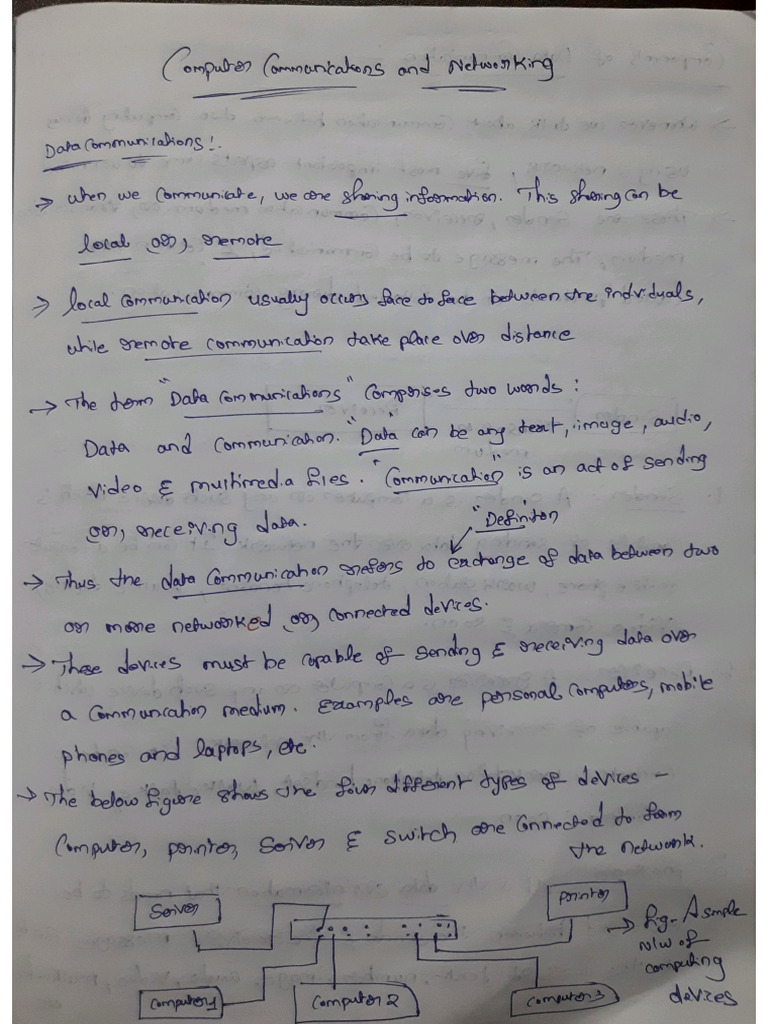 Computer Communications and Networking
Data Communications:.
→ when we communicate, we are sharing information. This sharing can be
local (or) remote
→ local communication usually occurs face to face between the individuals,
while remote communication take place over distance
→ The term "Data Communications" comprises two words :
Data and Communication. "Data" can be any text, image, audio,
video & multimedia files. "Communication" is an act of sending
(or) receiving data.
"Definiton"
→ Thus the data communication refers to exchange of data between two
or more networked (or) connected devices.
→ These devices must be capable of sending & receiving data over
a communication medium. Examples are personal computers, mobile
phones and laptops, etc.
→ The below figure shows the four different types of devices -
Computer, printer, Server & switch are connected to form
the network.
Server
Printer
→ fig- A simple
N/w of
computing
devices
Computer1
Computer 2
Computer 3